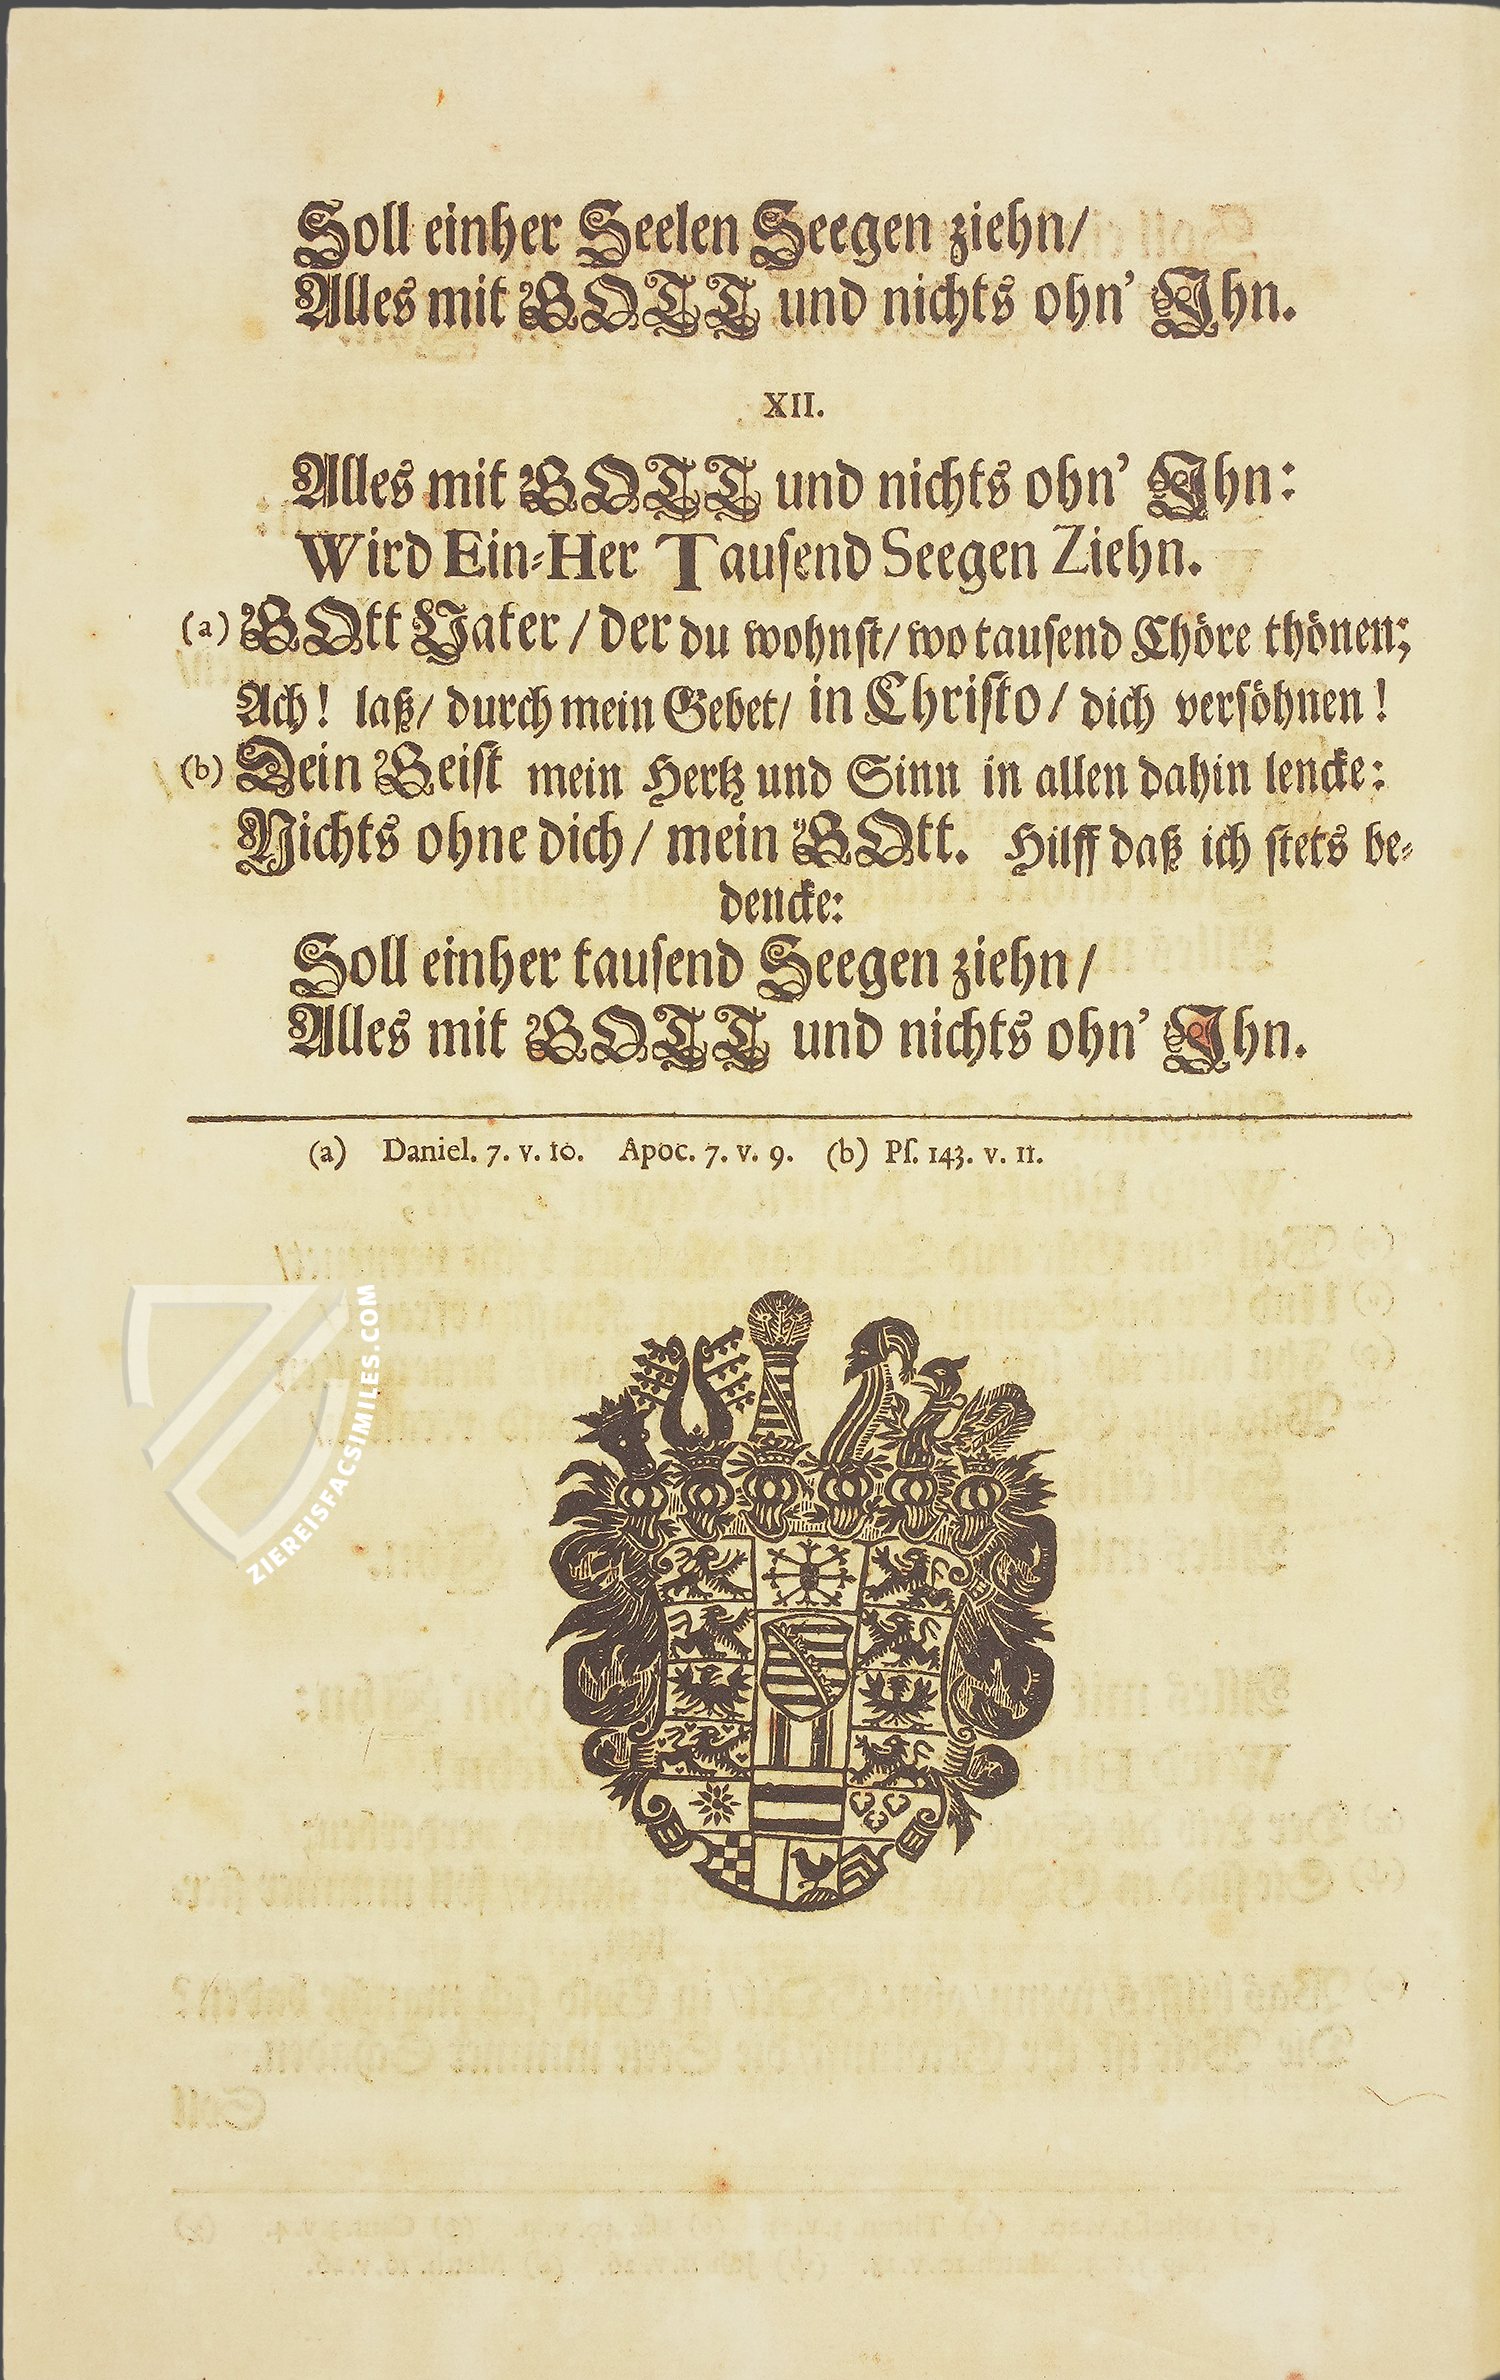 Soll einher Seelen Seegen ziehn/
Alles mit GOTT und nichts ohn’ Ihn.
XII.
Alles mit GOTT und nichts ohn’ Ihn:
Wird Ein-Her Tausend Seegen Ziehn.
(a) GOtt Vater / der du wohnst / wo tausend Chöre thönen;
Ach! laß / durch mein Gebet / in Christo / dich versöhnen!
(b) Dein Geist mein Hertz und Sinn in allen dahin lencke:
Nichts ohne dich / mein GOtt. Hilff daß ich stets be-
dencke:
Soll einher tausend Seegen ziehn /
Alles mit GOTT und nichts ohn’ Ihn.
(a) Daniel. 7. v. 10. Apoc. 7. v. 9. (b) Ps. 143. v. 11.
ZIEREISFACSIMILES.COM